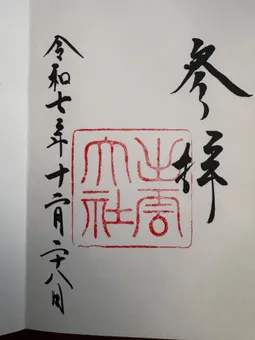 参拝
出雲大社
令和七年十一月二十八日